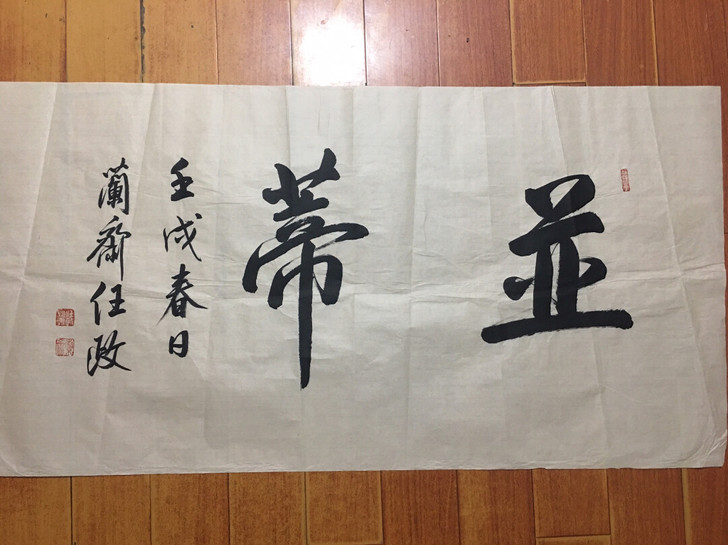 並蒂
壬戌春日
蘭齋任政